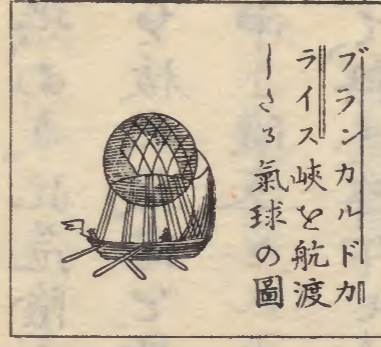 ブランカルドカ
ライス峡を航渡
したる氣球の圖